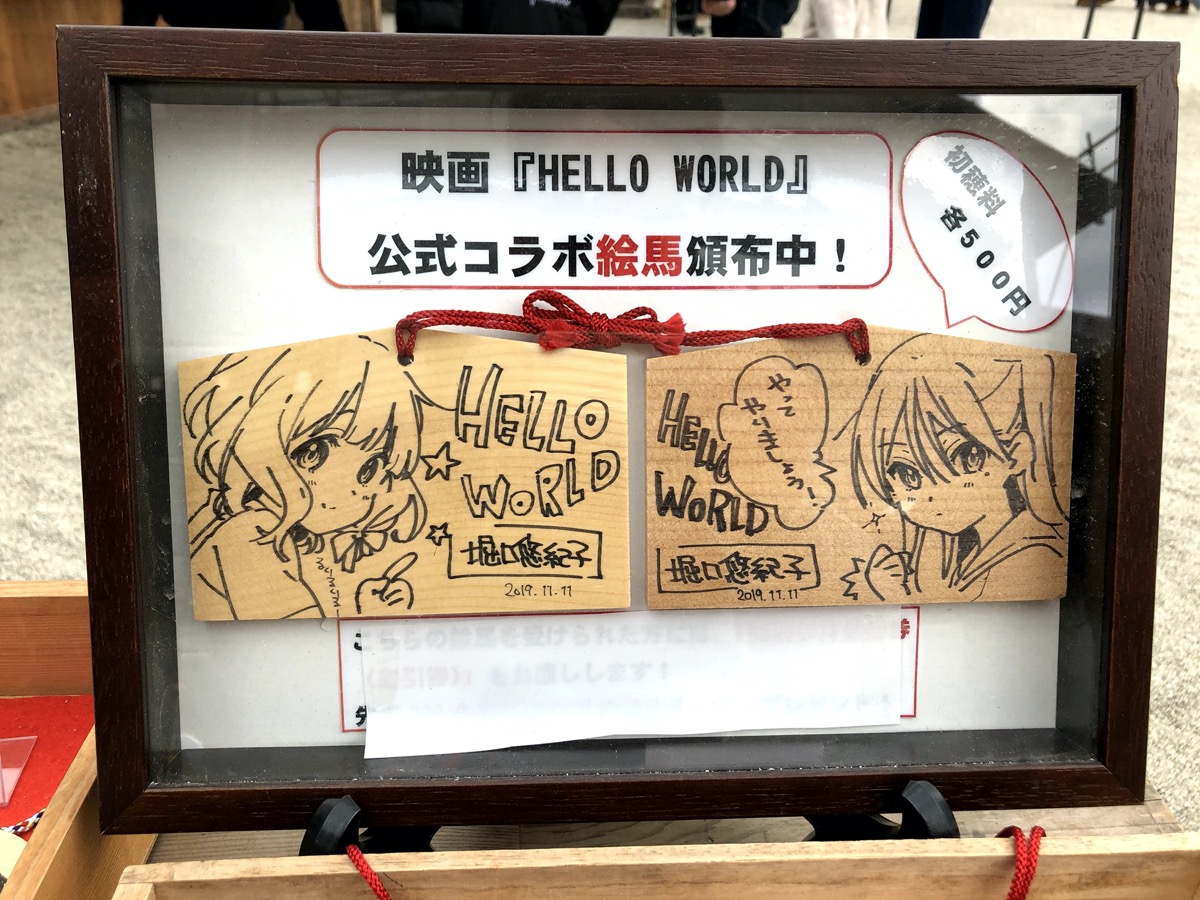 映画『HELLO WORLD』
公式コラボ絵馬頒布中！
初穂料
各５００円
HELLO
WORLD
堀口悠紀子
2019.11.11
HELLO
WORLD
やって
やりましょう!
堀口悠紀子
2019.11.11
こちらの絵馬を受けられた方には、
引券）』をお渡しします！